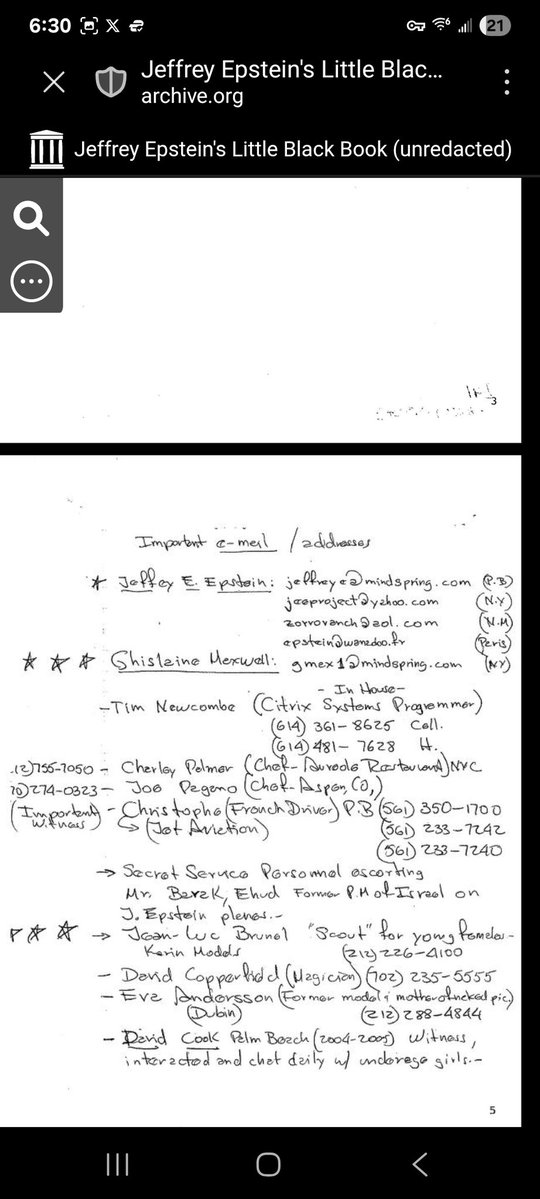 6:30
21
Jeffrey Epstein's Little Blac...
archive.org
Jeffrey Epstein's Little Black Book (unredacted)
3
Important e-mail / addresses
* Jeffrey E. Epstein: jeffreye@mindspring.com (P.B)
jeeproject@yahoo.com (N.Y)
zorroranch@aol.com (N.M)
epstein@wanadoo.fr (Paris)
Ghislaine Maxwell: gmax1@mindspring.com (NY)
- In House -
- Tim Newcombe (Citrix Systems Programmer)
(614) 361-8625 Cell.
(614) 481-7628 H.
12)755-7050 - Charley Palmer (Chef- Aureole Restaurant) NYC
70)274-0323 - Joe Pagano (Chef- Aspen, CO,)
(Important Witness) - Christophe (French Driver) P.B (561) 350-1700
(Jet Aviation) (561) 233-7242
(561) 233-7240
→ Secret Service Personnel escorting
Mr. Barak, Ehud Former P.M of Israel on
J. Epstein planes.-
→ Jean-Luc Brunel "Scout" for young females -
Karin Models (212) 226-4100
- David Copperfield (Magician) (702) 235-5555
- Eva Andersson (Former model & mother of naked pic)
(Dubin) (212) 288-4844
- David Cook Palm Beach (2004-2005) Witness,
interacted and chat daily w/ underage girls.-
5